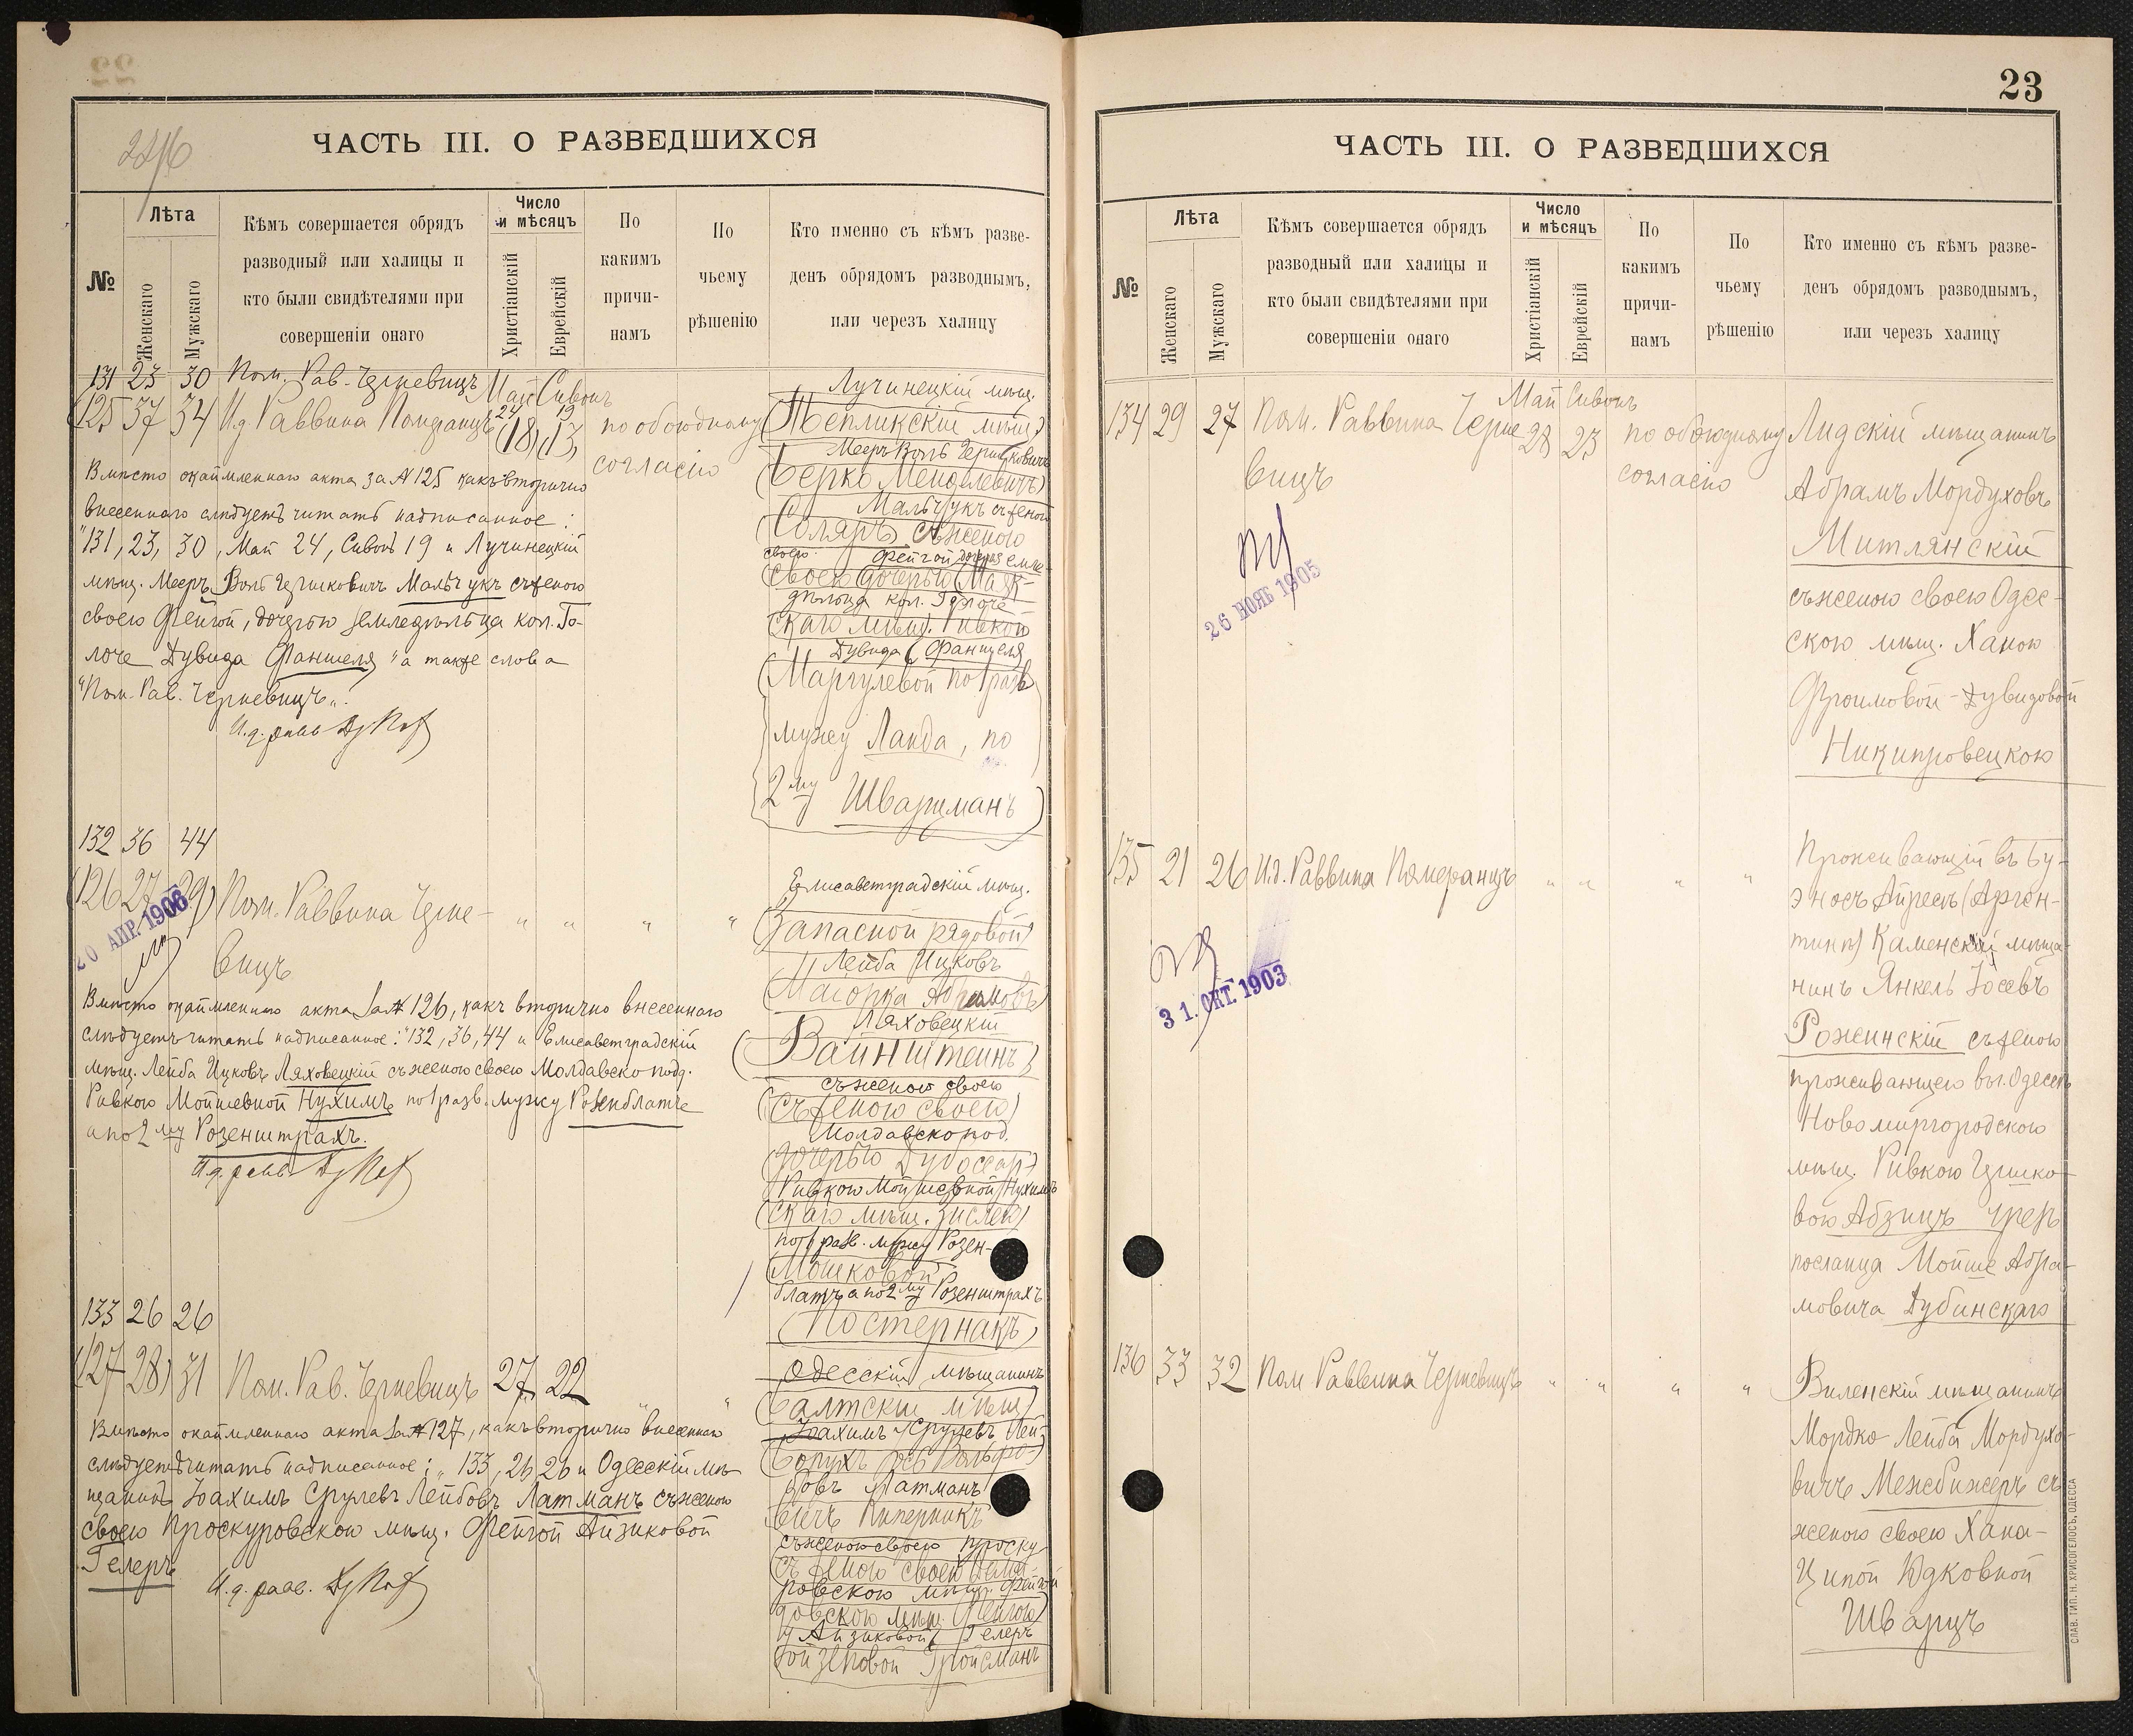 ЧАСТЬ III. О РАЗВЕДШИХСЯ
№
Лѣта
Женскаго
Мужскаго
Кѣмъ совершается обрядъ
разводный или халицы и
кто были свидѣтелями при
совершеніи онаго
Число
и мѣсяцъ
Христіанскій
Еврейскій
По
какимъ
причи-
намъ
По
чьему
рѣшенію
Кто именно съ кѣмъ разве-
денъ обрядомъ разводнымъ,
или черезъ халицу
131 23 30 Пом. Рав. Черневицъ Май Сивонъ
24 19
(125 37 34 И.д. Раввина Померанцъ (18) (13)
по обоюдному
согласію
Лучинецкій мѣщ.
(Тепликскій мѣщ.)
Мееръ Волъ Гершковичъ
(Берко Менделевичъ)
Мальчукъ съ женою
(Соляръ съ женою
своею Фейгой дочерью земле-
своею дочерью
дѣльца кол. Голоче
скаго мѣщ. Ривкой
Дувида Фаншеля
(Маргулевой по 1 разв.
мужу Ланда, по
2му Шварцманъ)
Вмѣсто окаймленнаго акта за № 125 какъ вторично
внесеннаго слѣдуетъ читать надписанное:
"131, 23, 30, Май 24, Сивонъ 19 и Лучинецкій
мѣщ. Мееръ Волъ Гершковичъ Мальчукъ съ женою
своею Фейгой, дочерью земледѣльца кол. Го-
лоче Дувида Фаншеля" а также слова
"Пом. Рав. Черневицъ".
И.д. равв.
132 36 44
(126 27 39) Пом. Раввина Черне-
вицъ
" " " "
20 АПР. 1906
Елисаветградскій мѣщ.
(Запасной рядовой)
Лейба Ицковъ
Ляховецкій
(Вайнштейнъ)
съ женою своею
(съ женою своею)
Молдавскопод.
(дочерью Дубоссар-)
Ривкою Мойшевной Нухимъ
(скаго мѣщ. Зислею)
по 1 разв. мужу Розен-
(Мошковой
блатъ а по 2му Розенштрахъ
(Постернакъ)
Вмѣсто окаймленнаго акта за № 126, какъ вторично внесеннаго
слѣдуетъ читать надписанное: "132, 36, 44 и Елисаветградскій
мѣщ. Лейба Ицковъ Ляховецкій съ женою своею Молдавскопод.
Ривкою Мойшевной Нухимъ по 1 разв. мужу Розенблатъ
а по 2му Розенштрахъ.
И.д. равв.
133 26 26
(127 28) 31 Пом. Рав. Черневицъ 27 22 " "
Одесскій мѣщанинъ
(Балтскій мѣщ.)
Іоахимъ Срулевъ Лей-
(Борухъ Іосъ Вольфо-)
бовъ Латманъ
вичъ Пиперникъ
съ женою своею Проску-
съ женою своею
ровскою мѣщ. Фейгой
Айзиковой Гелеръ
Гройсманъ
Вмѣсто окаймленнаго акта за № 127, какъ вторично внесеннаго
слѣдуетъ читать надписанное: "133, 26, 26 и Одесскій мѣ-
щанинъ Іоахимъ Срулевъ Лейбовъ Латманъ съ женою
своею Проскуровскою мѣщ. Фейгой Айзиковой
Гелеръ
И.д. равв.
23
ЧАСТЬ III. О РАЗВЕДШИХСЯ
№
Лѣта
Женскаго
Мужскаго
Кѣмъ совершается обрядъ
разводный или халицы и
кто были свидѣтелями при
совершеніи онаго
Число
и мѣсяцъ
Христіанскій
Еврейскій
По
какимъ
причи-
намъ
По
чьему
рѣшенію
Кто именно съ кѣмъ разве-
денъ обрядомъ разводнымъ,
или черезъ халицу
Май Сивонъ
134 29 27 Пом. Раввина Черне-
вицъ
28 23
по обоюдному
согласію
26 НОЯБ 1905
Лидскій мѣщанинъ
Абрамъ Мордуховъ
Митлянскій
съ женою своею Одес-
скою мѣщ. Ханою
Фроимовой-Дувидовой
Никипровецкою
135 21 26 И.д. Раввина Померанцъ " " " "
31. ОКТ. 1903
Проживающій въ Бу-
эносъ Айресъ (Арген-
тина) Каменскій мѣща-
нинъ Янкель Іосевъ
Рожинскій съ женою
проживающею въ г. Одессѣ
Новомиргородскою
мѣщ. Ривкою Гершко-
вою Абзицъ чрезъ
посланца Мойше Абра-
мовича Дубинскаго
136 33 32 Пом Раввина Черневицъ " " " "
Виленскій мѣщанинъ
Мордко-Лейба Мордухо-
вичъ Межбижеръ съ
женою своею Хана-
Ципой Юдковной
Шварцъ
СЛАВ. ТИП. Н. ХРИСОГЕЛОСЪ, ОДЕССА